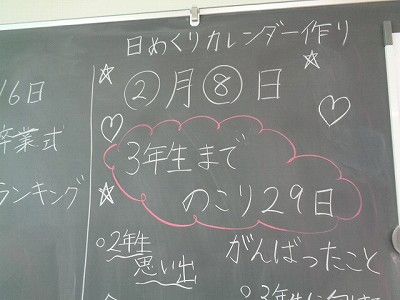 日めくりカレンダー作り
②月⑧日
3年生まで
のこり29日
○2年生
思い出
がんばったこと
16日
卒業式
ランキング